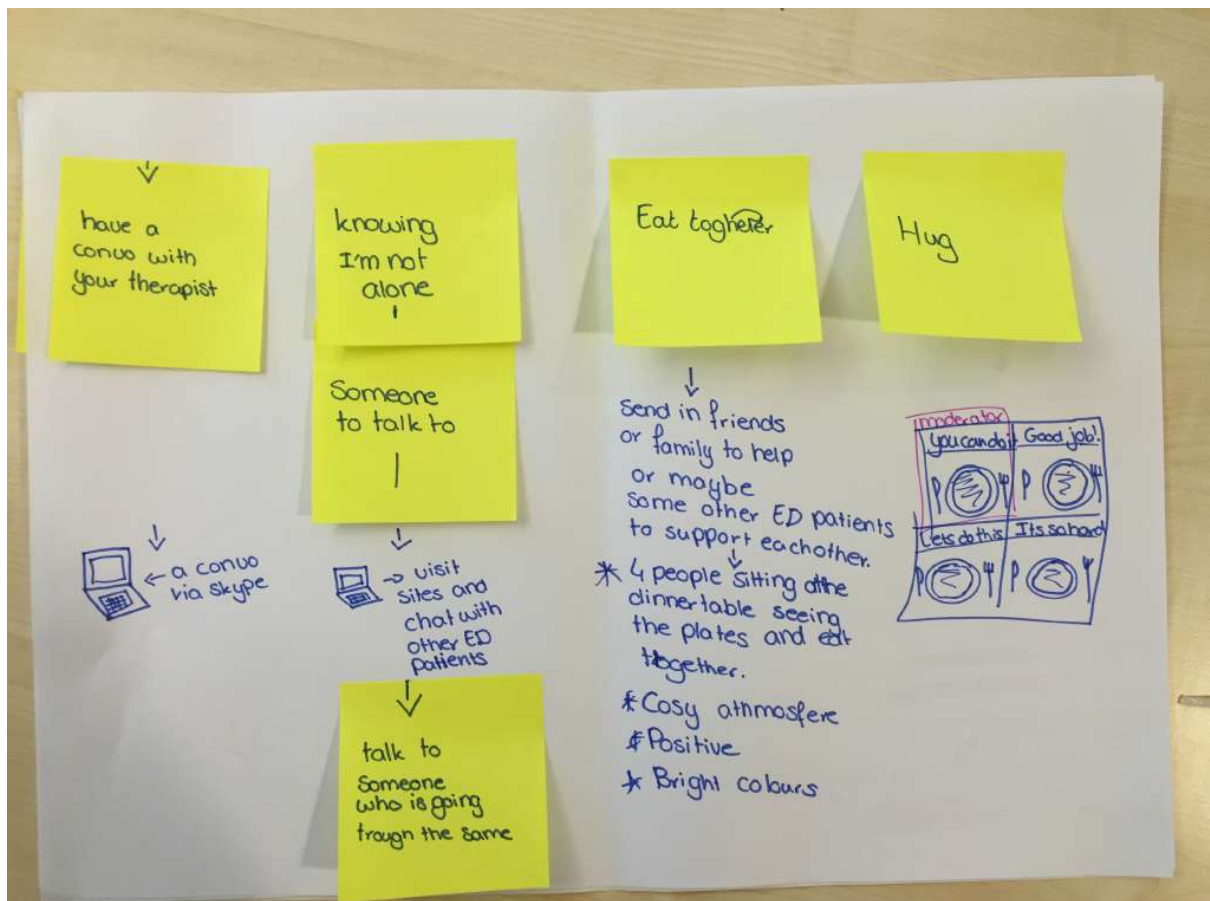 have a
convo with
your therapist
a convo
via skype
knowing
I'm not
alone
Someone
to talk to
visit
sites and
chat with
other ED
patients
talk to
Someone
who is going
trough the same
Eat togheter
send in friends
or family to help
or maybe
some other ED patients
to support eachother.
* 4 people sitting at the
dinnertable seeing
the plates and eat
together.
* Cosy athmosfere
* Positive
* Bright colours
Hug
moderator
you can do it
Good job!
Lets do this
Its so hard